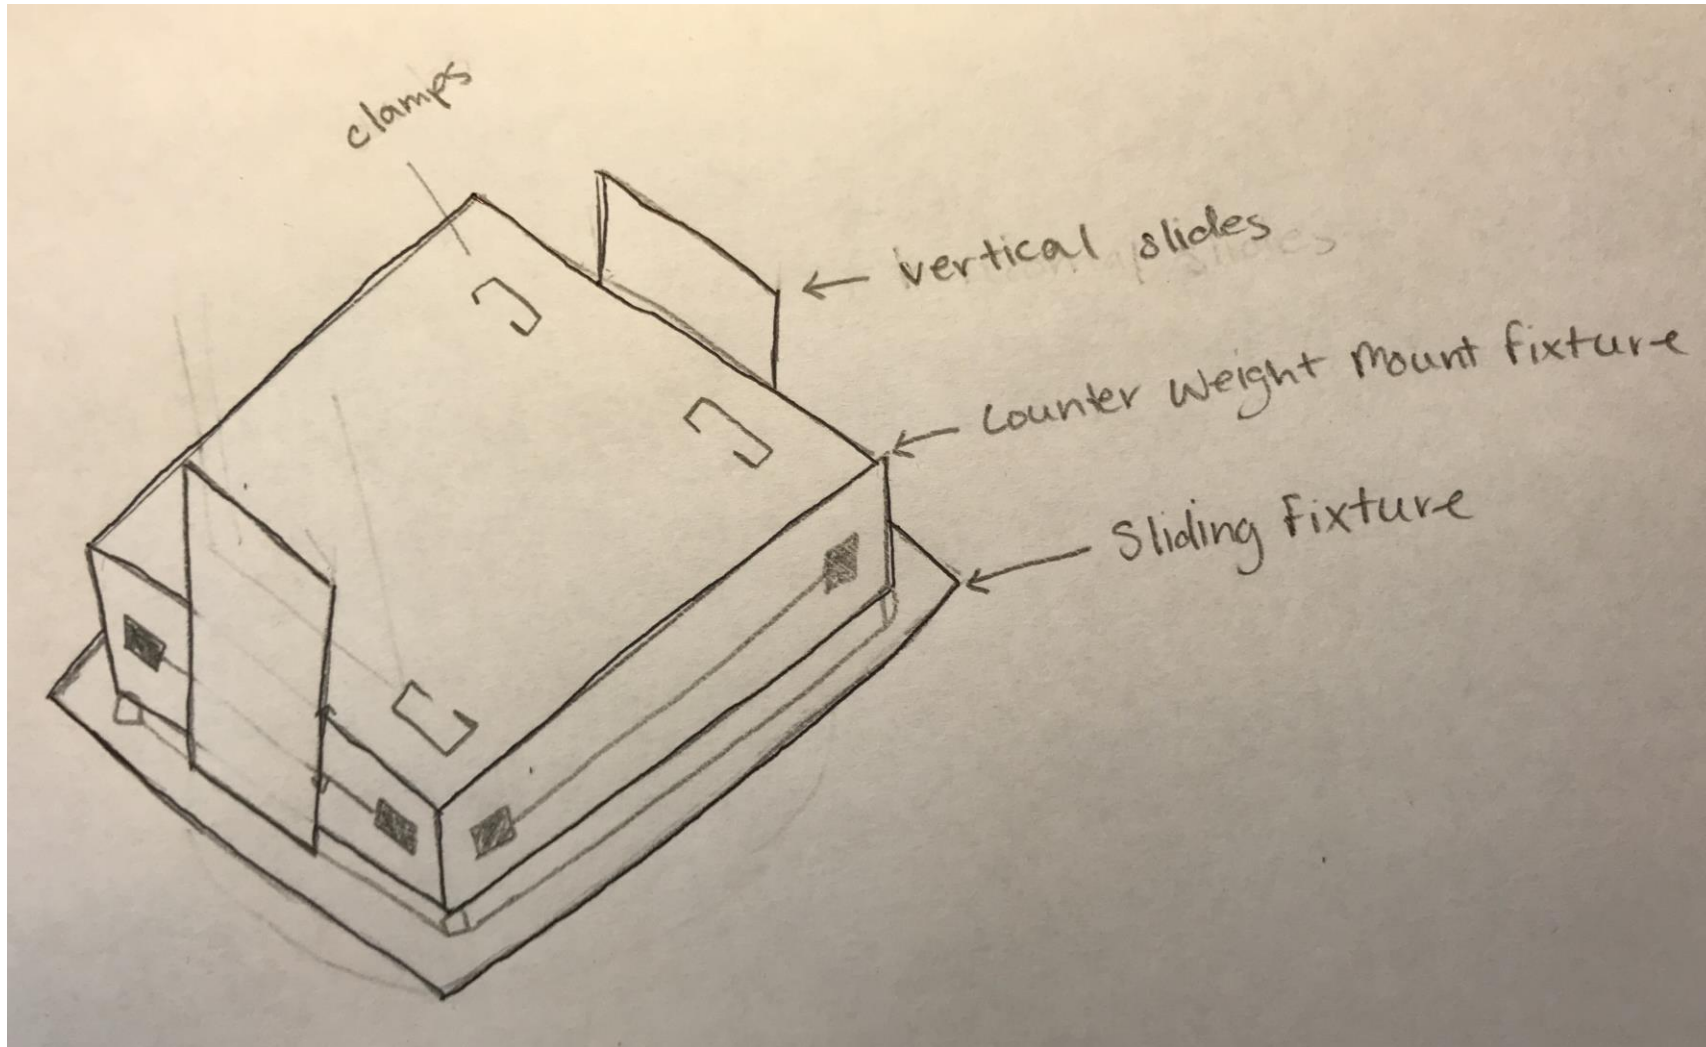 clamps
vertical slides
Counter Weight Mount fixture
Sliding Fixture